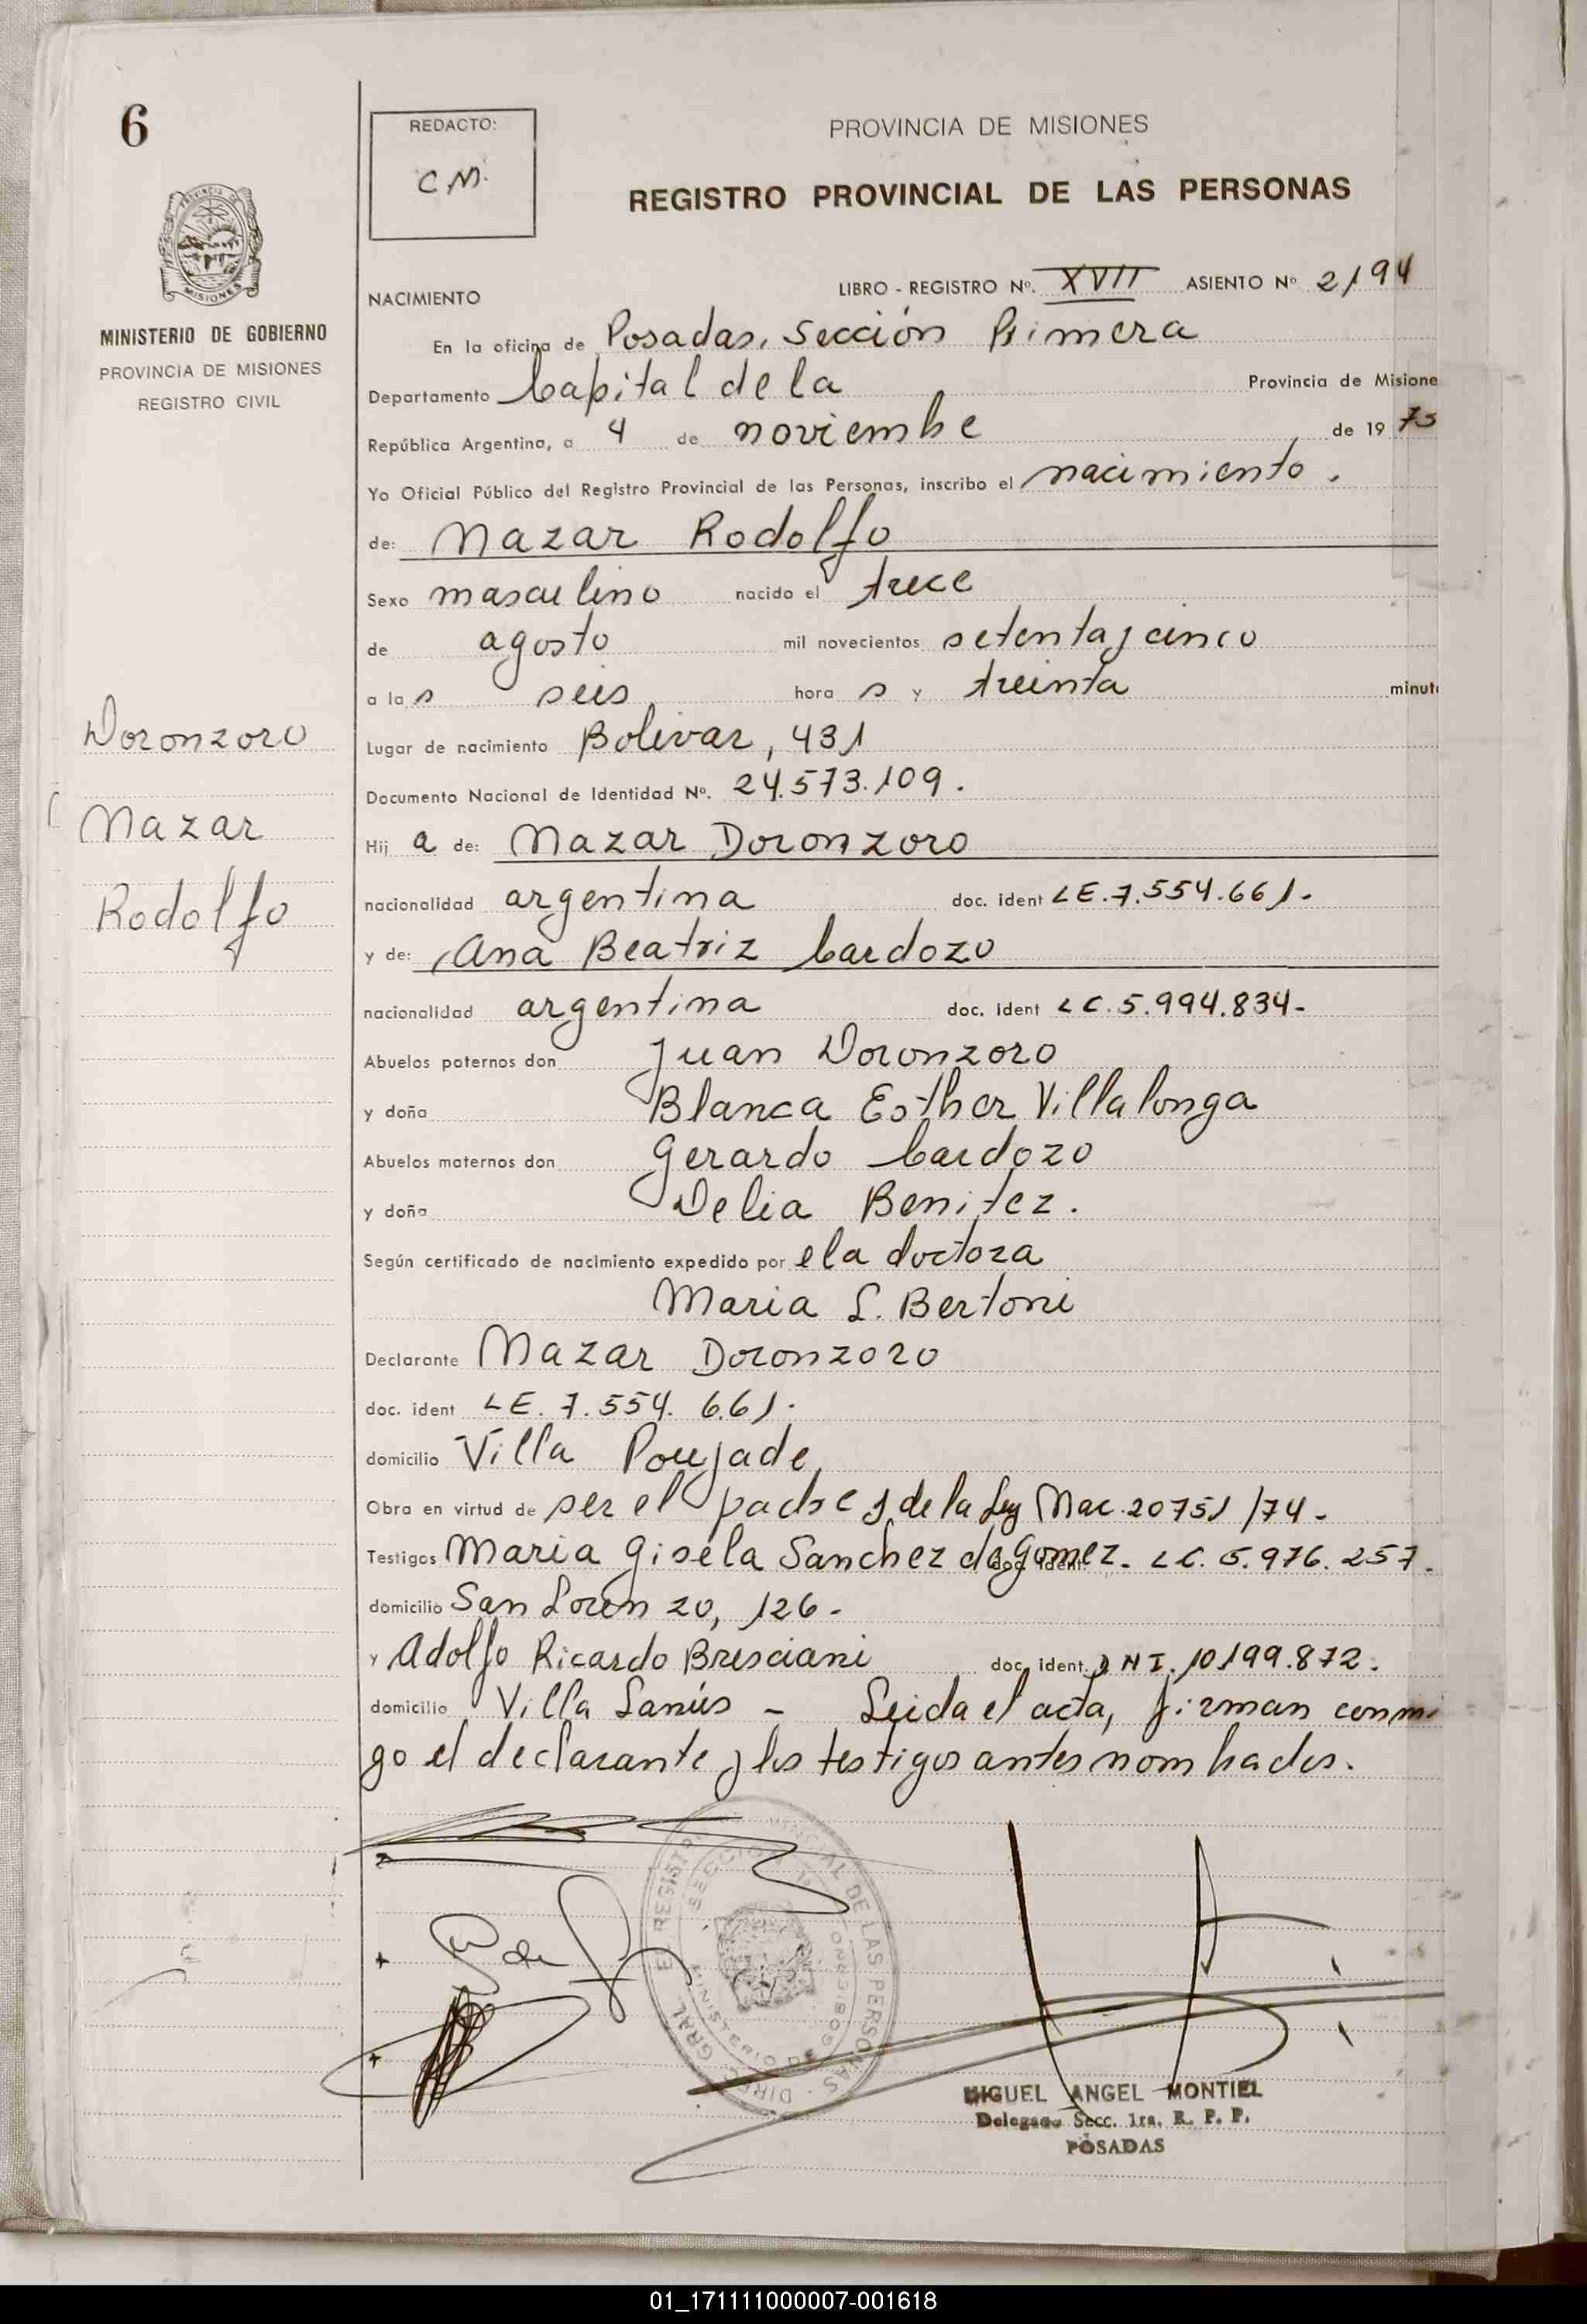 6
REDACTO:
C M.
PROVINCIA DE MISIONES
REGISTRO PROVINCIAL DE LAS PERSONAS
PROVINCIA
MISIONES
MINISTERIO DE GOBIERNO
PROVINCIA DE MISIONES
REGISTRO CIVIL
NACIMIENTO
LIBRO - REGISTRO Nº. XVII ASIENTO Nº 2194
En la oficina de Posadas, Sección Primera
Departamento Capital de la Provincia de Misione
República Argentina, a 4 de noviembre de 19 75
Yo Oficial Público del Registro Provincial de las Personas, inscribo el nacimiento.
de: Nazar Rodolfo
Sexo masculino nacido el trece
de agosto mil novecientos setenta y cinco
a la s seis hora s y treinta minut
Lugar de nacimiento Bolivar, 431
Documento Nacional de Identidad Nº. 24.573.109.
Doronzoro
Nazar
Rodolfo
Hij a de: Nazar Doronzoro
nacionalidad argentina doc. ident LE.7.554.661.
y de: Ana Beatriz Cardozo
nacionalidad argentina doc. ident LC.5.994.834-
Abuelos paternos don Juan Doronzoro
y doña Blanca Esther Villalonga
Abuelos maternos don Gerardo Cardozo
y doña Delia Benitez.
Según certificado de nacimiento expedido por ela doctora
Maria L. Bertoni
Declarante Nazar Doronzoro
doc. ident LE. 7.554. 661.
domicilio Villa Poujade,
Obra en virtud de ser el padre y de la Ley Nac. 20751/74-
Testigos Maria Gisela Sanchez de Gomez- doc. ident. LC. 5.976.257.
domicilio San Lorenzo, 126-
y Adolfo Ricardo Bresciani doc. ident. DNI. 10.199.872.
domicilio Villa Lanús - Leida el acta, firman conmi
go el declarante y los testigos antes nombrados.
DIREC. GRAL. DE LAS PERSONAS
MINISTERIO DE GOBIERNO
MIGUEL ANGEL MONTIEL
Delegado Secc. 1ra. R. P. P.
POSADAS
01_171111000007-001618